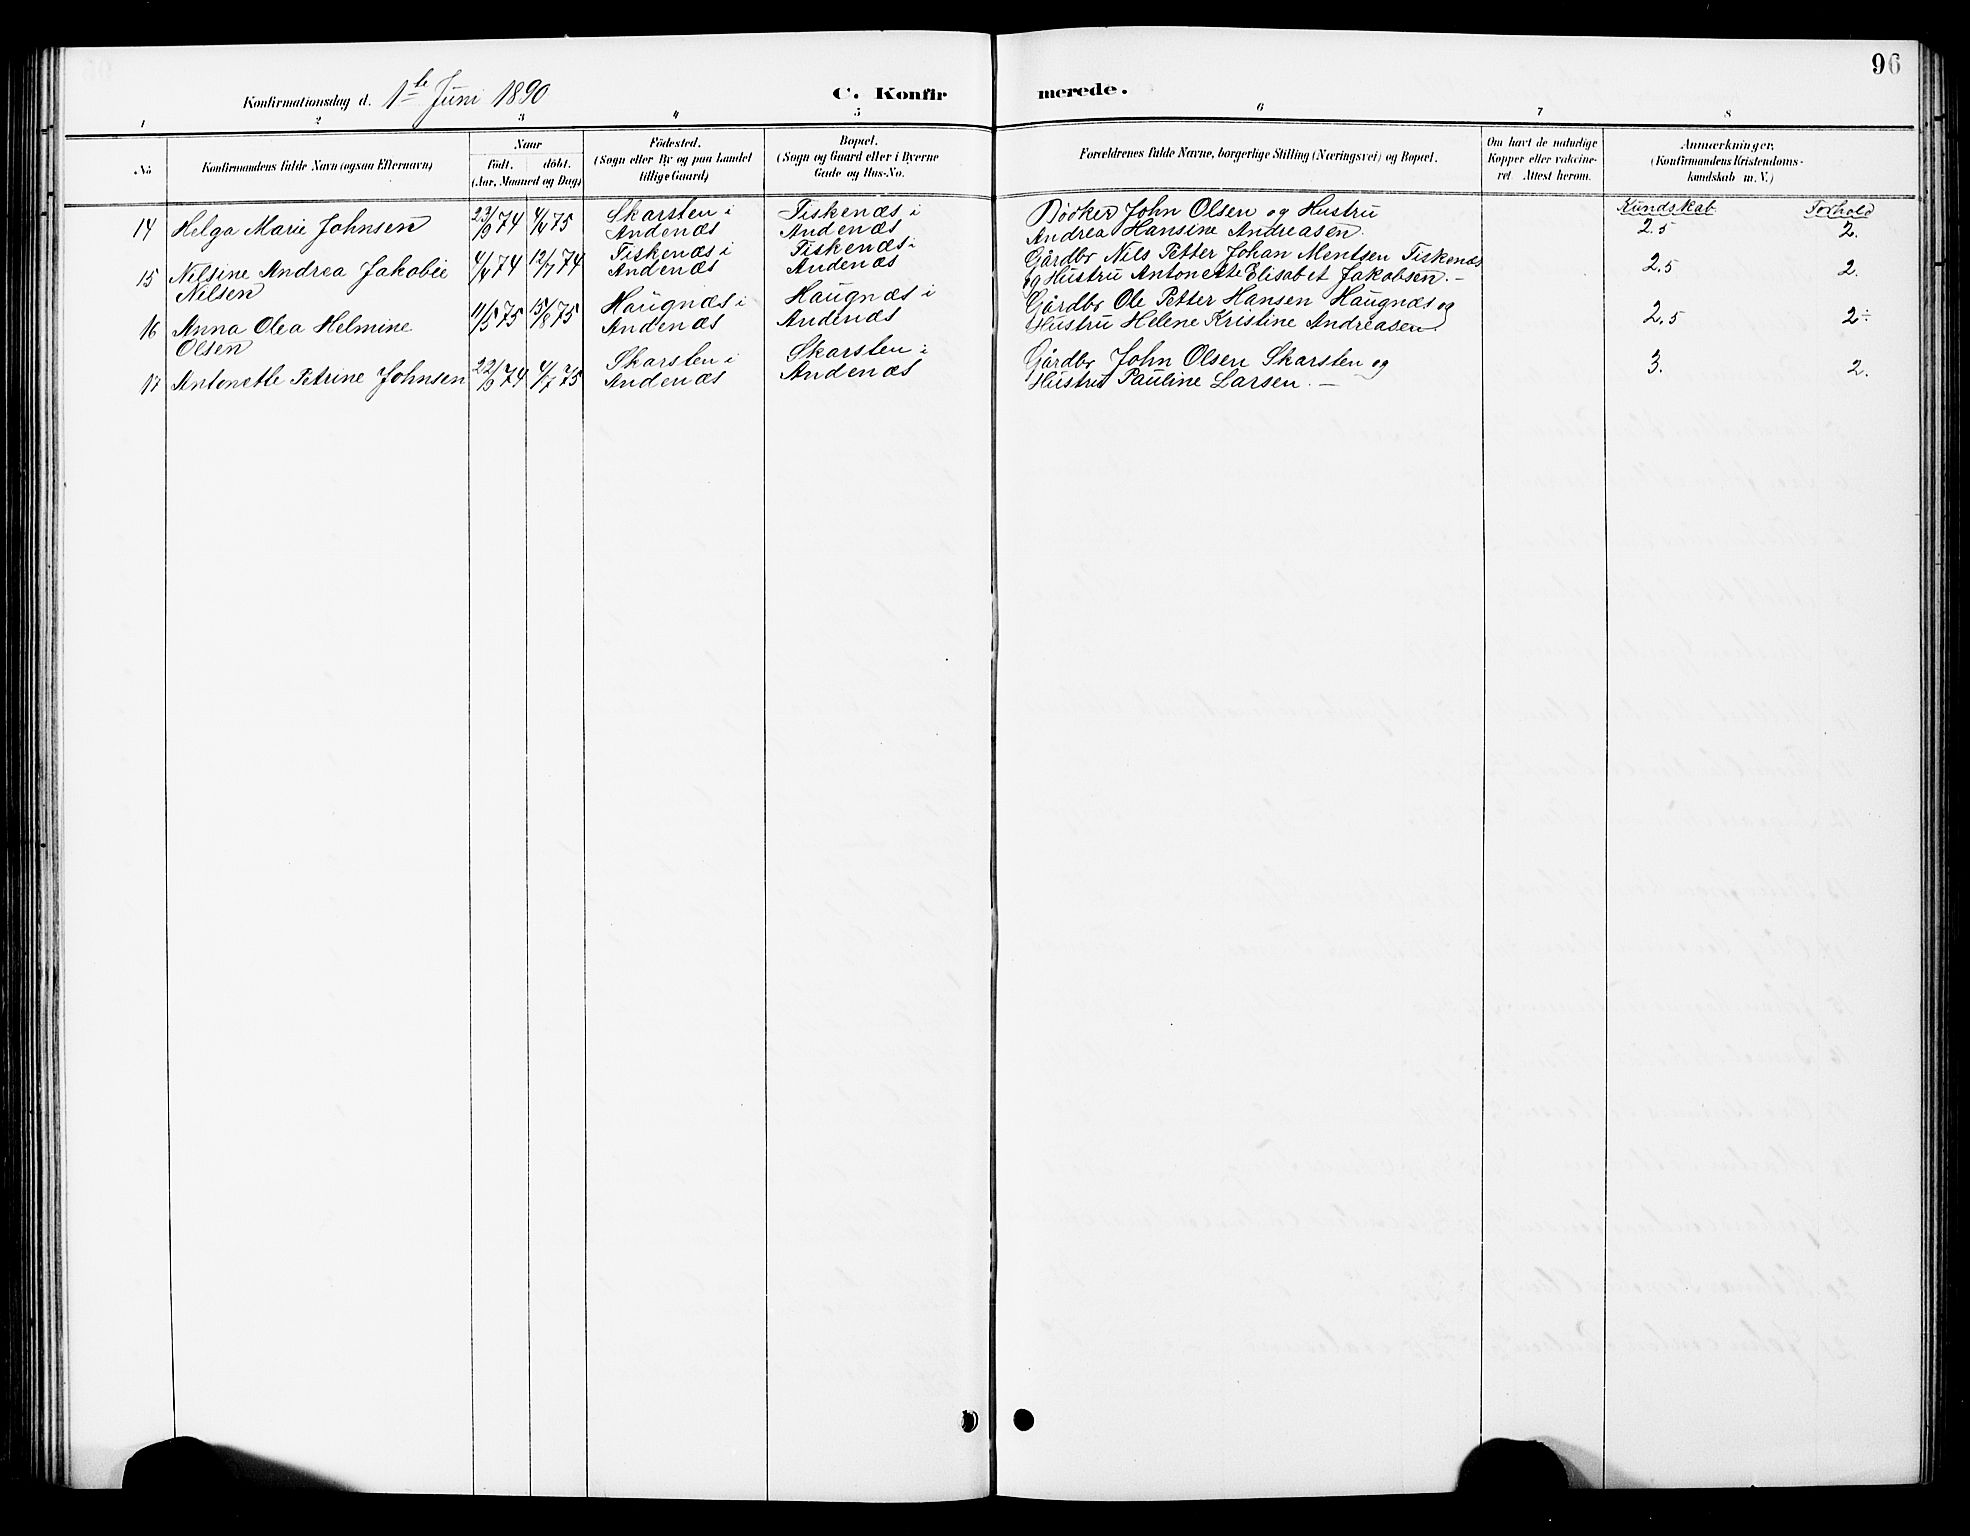 96
Konfirmationsdag d. 1ste Juni 1890
C. Konfirmerede.
1 2 3 4 5 6 7 8
No
Konfirmandens fulde Navn (ogsaa Efternavn)
Naar
födt. döbt.
(Aar, Maaned og Dag)
Födested.
(Sogn eller By og paa Landet
tillige Gaard)
Bopæl.
(Sogn og Gaard eller i Byerne
Gade og Hus-No.
Forældrenes fulde Navne, borgerlige Stilling (Næringsvei) og Bopæl.
Om havt de naturlige
Kopper eller vakcine-
ret. Attest herom.
Anmærkninger.
(Konfirmandens Kristendoms-
kundskab m. V.)
Kundskab Forhold
14 Helga Marie Johnsen 23/9 74 4/4 75 Skarsten i Fiskenæs i Bödker John Olsen og Hustru
Andenæs Andenæs Andrea Hansine Andreasen. 2.5 2.
15 Nilsine Andrea Jakobie 4/4 74 12/7 74 Fiskenæs i Fiskenæs i Gårdbr Nils Petter Johan Mentsen Fiskenæs
Nilsen Andenæs Andenæs og Hustru Antonette Elisabet Jakobsen.— 2.5 2.
16 Anna Olea Helmine 11/5 75 15/8 75 Haugnæs i Haugnæs i Gårdbr Ole Petter Hansen Haugnæs og
Olsen Andenæs Andenæs Hustru Helene Kristine Andreasen. 2.5 2÷
17 Antonette Petrine Johnsen 22/9 74 4/7 75 Skarsten i Skarsten i Gårdbr John Olsen Skarsten og
Andenæs Andenæs Hustru Pauline Larsen.— 3. 2.